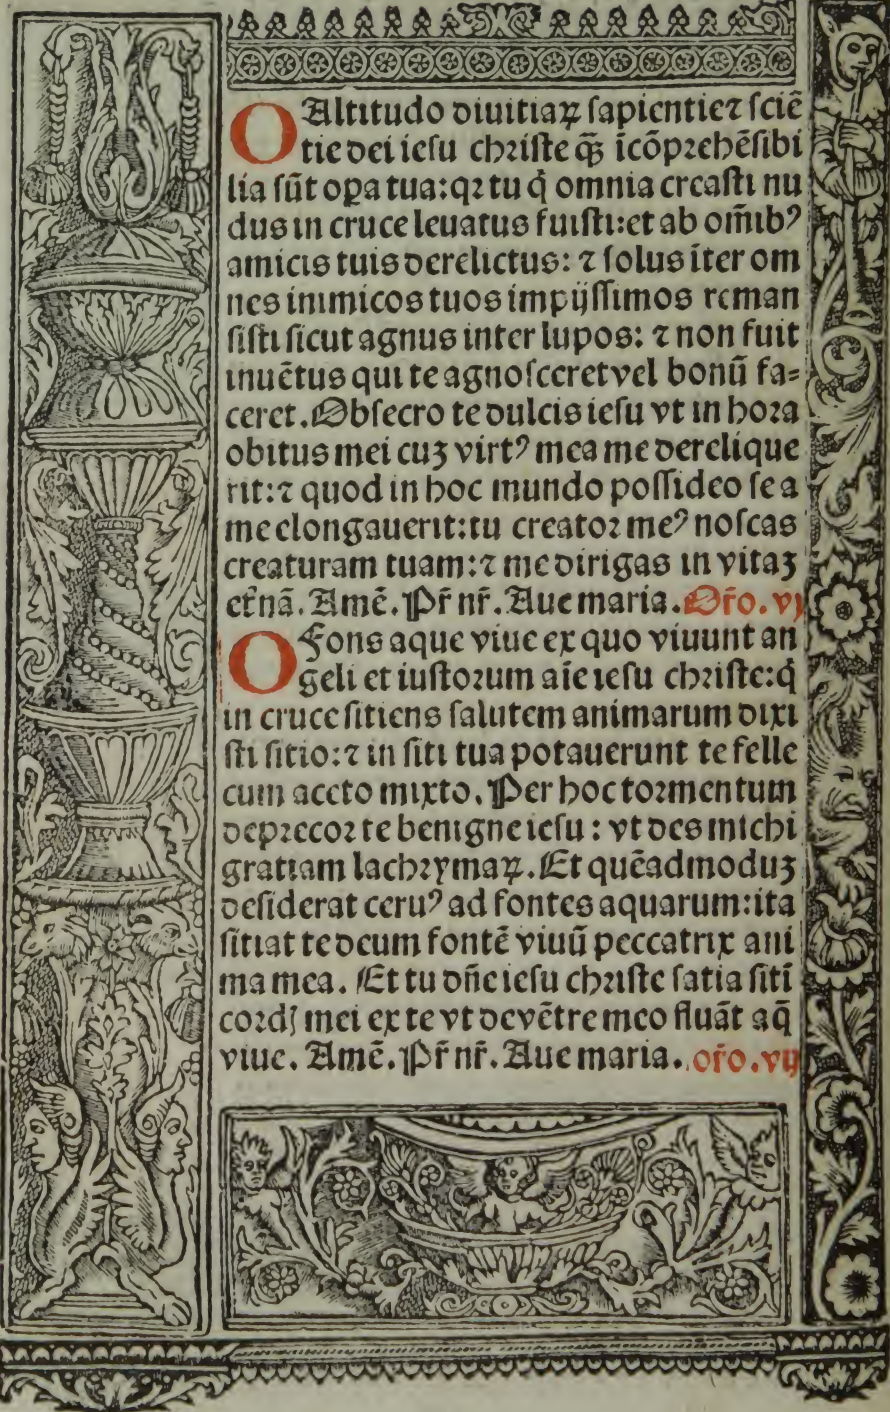 O Altitudo diuitiaꝝ sapientie⁊ sciē
tie dei iesu christe q̄ꝫ icōprehēsibi
lia sūt oꝑa tua:qꝛ tu q̇ omnia creasti nu
dus in cruce leuatus fuisti:et ab om̄ibꝰ
amicis tuis derelictus: ⁊ solus īter om
nes inimicos tuos impijssimos reman
sisti sicut agnus inter lupos: ⁊ non fuit
inuētus qui te agnosceret vel bonū fa⸗
ceret. Obsecro te dulcis iesu vt in hora
obitus mei cuꝫ virtꝰ mea me derelique
rit:⁊ quod in hoc mundo possideo se a
me elongauerit:tu creator meꝰ noscas
creaturam tuam:⁊ me dirigas in vitaꝫ
et̄nā. Amē. Pr̄ nr̄. Aue maria. Or̄o. vj
O Fons aque viue ex quo viuunt an
geli et iustorum aīe iesu christe:q̇
in cruce sitiens salutem animarum dixi
sti sitio:⁊ in siti tua potauerunt te felle
cum aceto mixto. Per hoc tormentum
deprecor te benigne iesu : vt des michi
gratiam lachrymaꝝ. Et quēadmoduꝫ
desiderat ceruꝰ ad fontes aquarum:ita
sitiat te deum fontē viuū peccatrix ani
ma mea. Et tu dn̄e iesu christe satia sitī
cordꝭ mei ex te vt de vētre meo fluāt aq̄
viue. Amē. Pr̄ nr̄. Aue maria. or̄o. vij